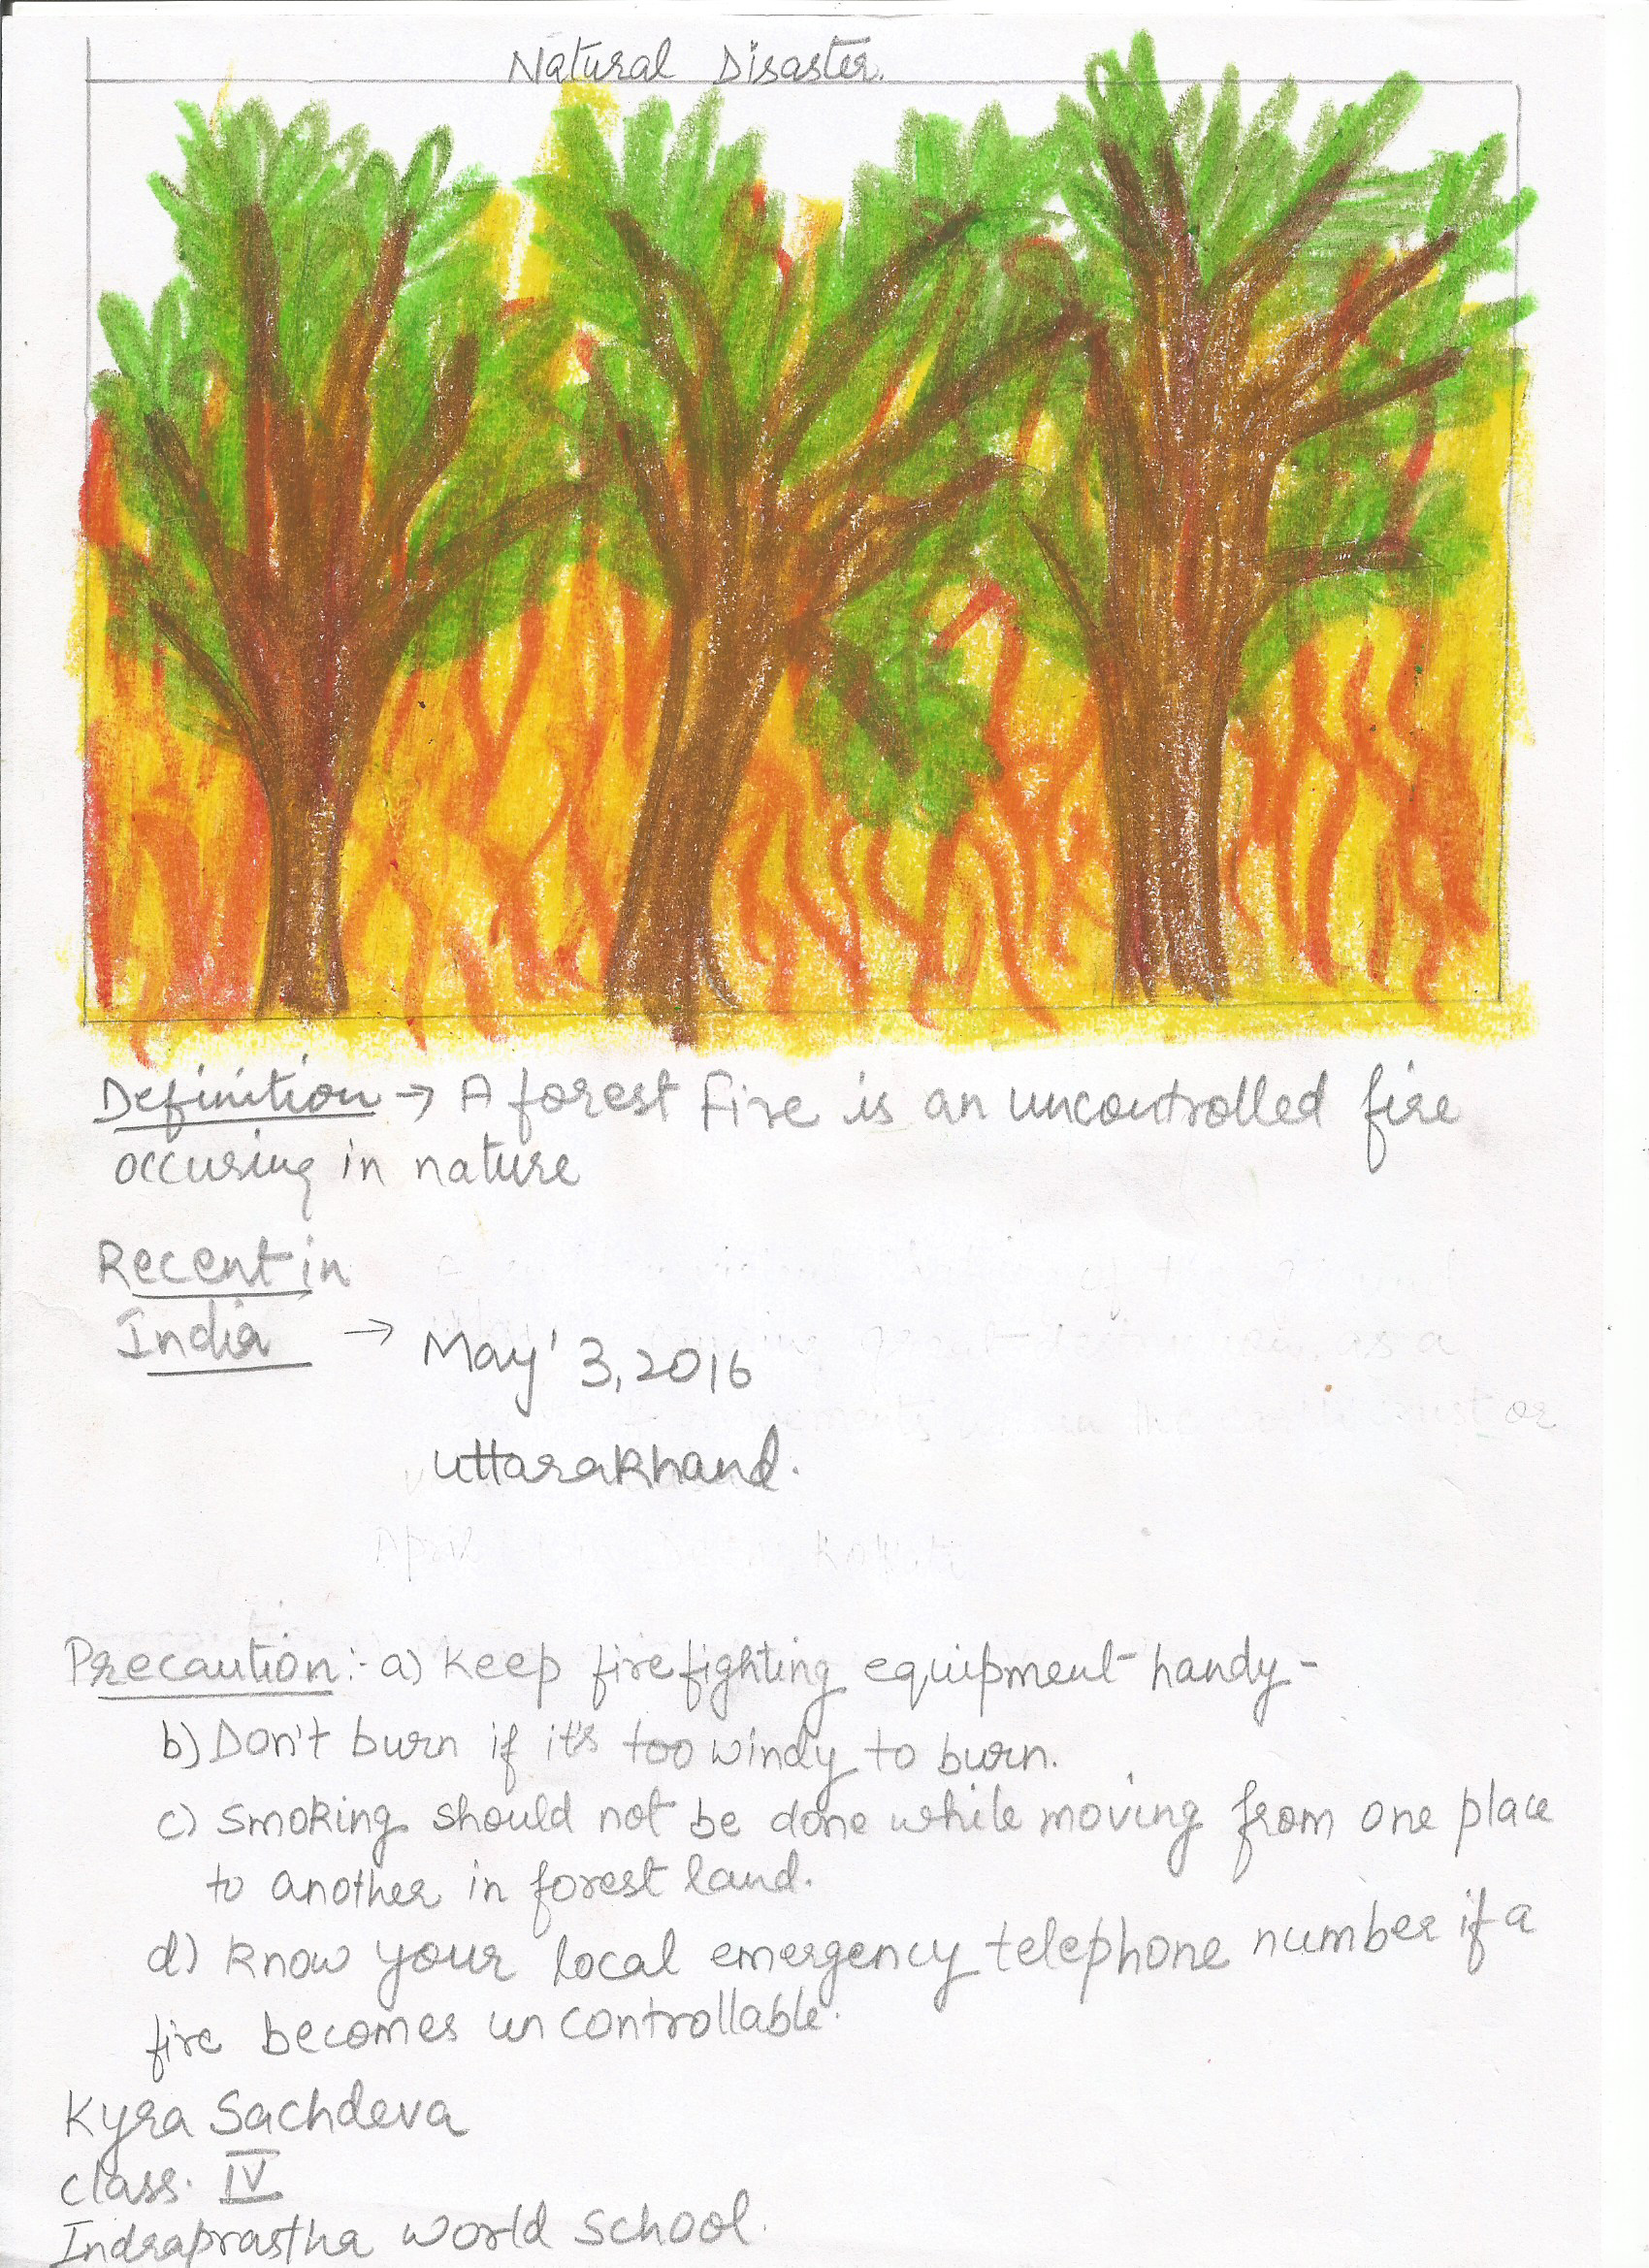 Natural Disaster.
Definition → A forest fire is an uncontrolled fire
occuring in nature
Recent in
India → May' 3, 2016
uttarakhand.
Precaution:- a) Keep fire fighting equipment handy-
b) Don't burn if it's too windy to burn.
c) Smoking should not be done while moving from one place
to another in forest land.
d) Know your local emergency telephone number if a
fire becomes uncontrollable.
Kyra Sachdeva
class. IV
Indraprastha World School.